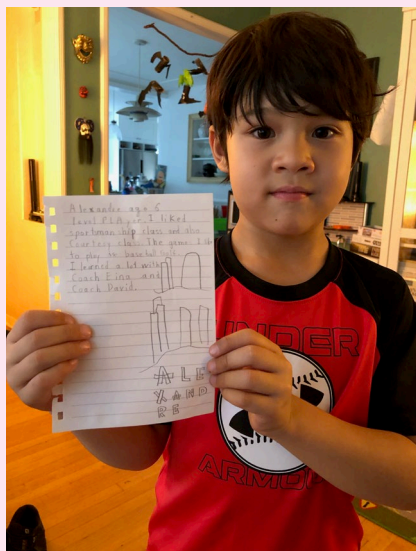 Alexandre age 6
Level Player. I liked
sportmanship class and also
Courtesy class. The game I like
to play is baseball
I learned a lot with
Coach Eina and
Coach David.
ALE
XAND
RE
UNDER
ARMOUR